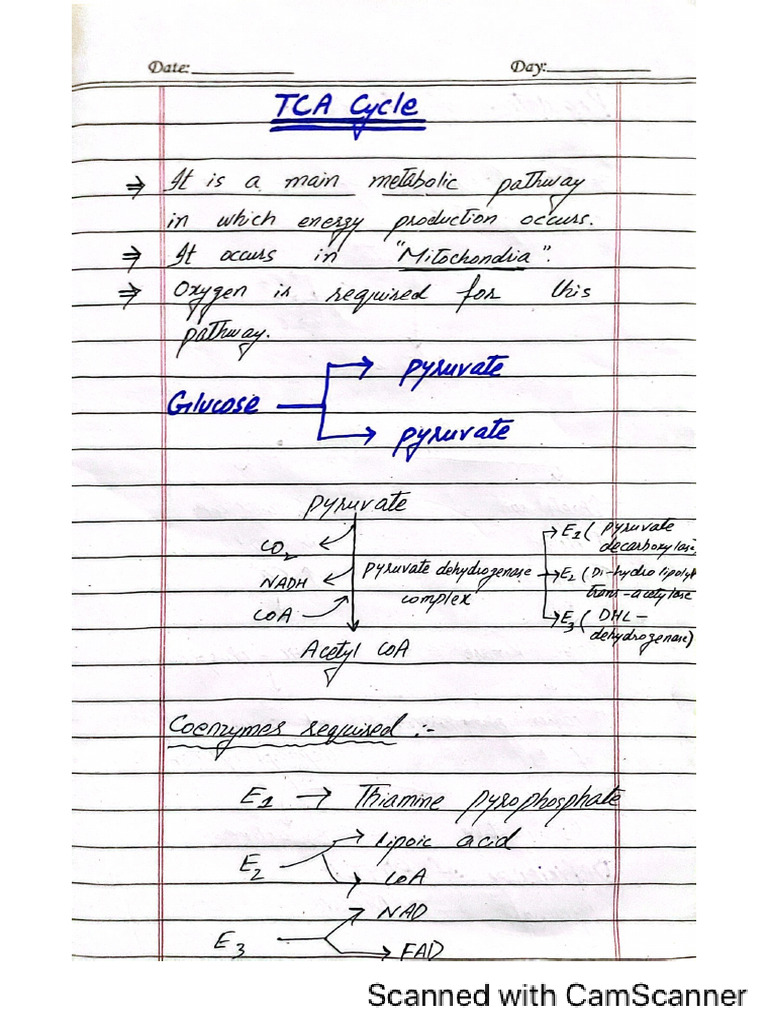 Date:__________ Day:__________
TCA Cycle
⇒ It is a main metabolic pathway
in which energy production occurs.
⇒ It occurs in "Mitochondria".
⇒ Oxygen is required for this
pathway.
pyruvate
Glucose
pyruvate
pyruvate
CO2
NADH
CoA
pyruvate dehydrogenase
complex
E1 ( pyruvate
decarboxylase)
E2 (Di-hydro lipolyl
trans-acetylase
E3 ( DHL-
dehydrogenase)
Acetyl CoA
Coenzymes required :-
E1 → Thiamine pyrophosphate
E2 → Lipoic acid
→ CoA
E3 → NAD
→ FAD
Scanned with CamScanner